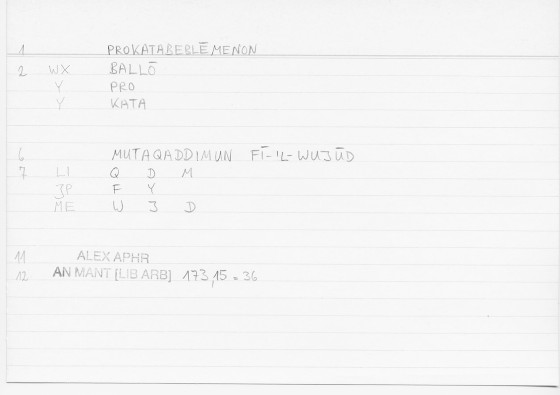 1 PROKATABEBLĒMENON
2 WX BALLŌ
Y PRO
Y KATA
6 MUTAQADDIMUN FĪ-'L-WUJŪD
7 LI Q D M
3P F Y
ME W J D
11 ALEX APHR
12 AN MANT [LIB ARB] 173,15 = 36